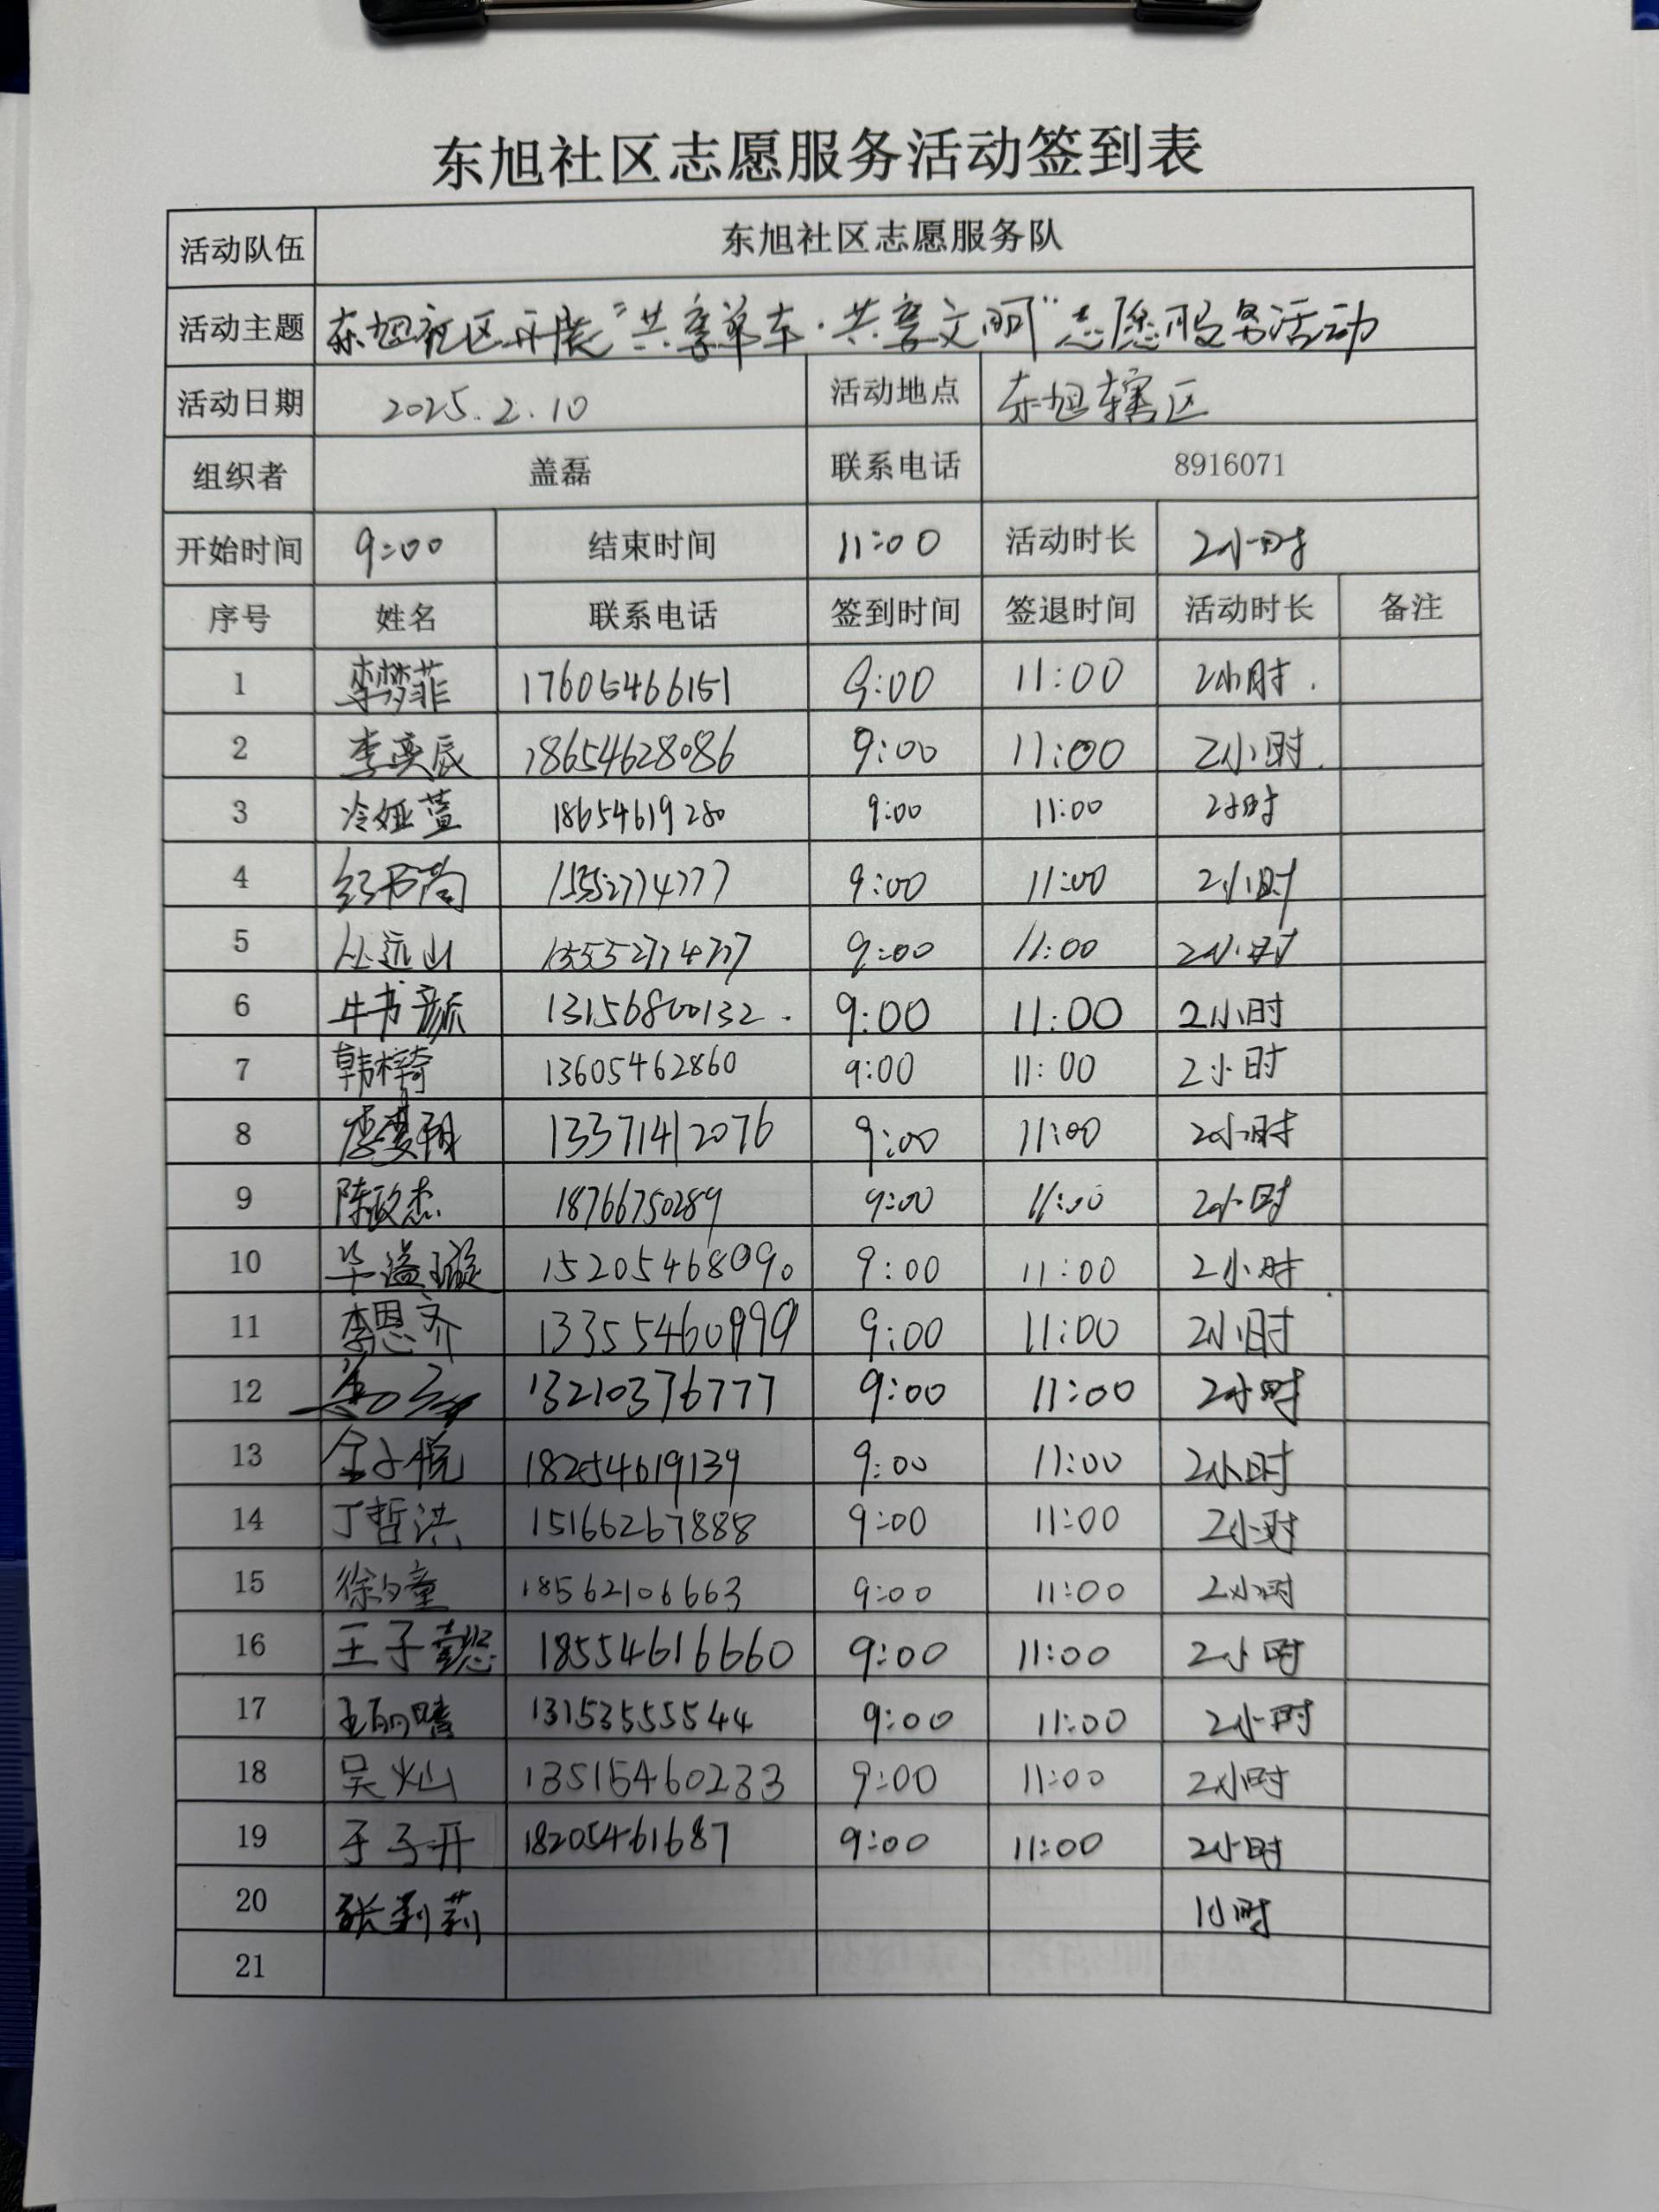 东旭社区志愿服务活动签到表
活动队伍 东旭社区志愿服务队
活动主题 东旭社区开展“共享单车·共享文明”志愿服务活动
活动日期 2025.2.10 活动地点 东旭辖区
组织者 盖磊 联系电话 8916071
开始时间 9:00 结束时间 11:00 活动时长 2小时
序号 姓名 联系电话 签到时间 签退时间 活动时长 备注
1 李梦菲 17605466151 9:00 11:00 2小时.
2 李奕辰 18654628086 9:00 11:00 2小时.
3 冷娅萱 18654619280 9:00 11:00 2小时
4 15552774777 9:00 11:00 2小时
5 丛远山 15552774777 9:00 11:00 2小时
6 牛书颜 13156800132. 9:00 11:00 2小时
7 韩梓琦 13605462860 9:00 11:00 2小时
8 13371412076 9:00 11:00 2小时
9 陈政杰 18766750289 9:00 11:00 2小时
10 毕溢璇 15205468090 9:00 11:00 2小时
11 李恩齐 13355460999 9:00 11:00 2小时
12 13210376777 9:00 11:00 2小时
13 金子悦 18254619139 9:00 11:00 2小时
14 丁哲洪 15166267888 9:00 11:00 2小时
15 徐夕童 18562106663 9:00 11:00 2小时
16 王子懿 18554616660 9:00 11:00 2小时
17 13153555544 9:00 11:00 2小时
18 吴灿 13515460233 9:00 11:00 2小时
19 于子开 18205461687 9:00 11:00 2小时
20 张莉莉 1小时
21